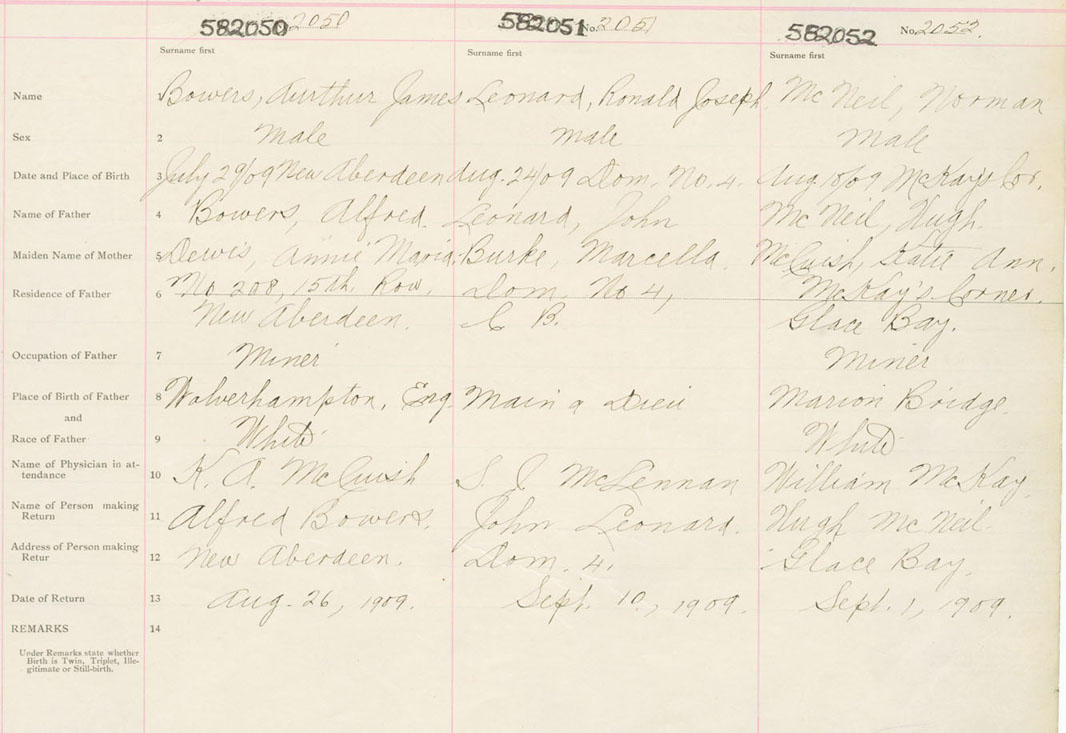 582050 2050 582051 No. 2051 582052 No. 2052.
Surname first Surname first Surname first
Name 1 Bowers, Aurthur James Leonard, Ronald Joseph. McNeil, Norman
Sex 2 Male male male
Date and Place of Birth 3 July 29/09 New Aberdeen Aug. 24/09 Dom. No. 4. Aug. 18/09 McKay's Cor.
Name of Father 4 Bowers, Alfred. Leonard, John McNeil, Hugh.
Maiden Name of Mother 5 Dewis, Annie Maria. Burke, Marcella. McCuish, Katie Ann.
Residence of Father 6 No 208, 15th Row. Dom. No 4, McKay's Corner.
New Aberdeen. C B. Glace Bay.
Occupation of Father 7 Miner Miner
Place of Birth of Father 8 Wolverhampton, Eng. Main a Dieu Marion Bridge.
and
Race of Father 9 White White
Name of Physician in at-
tendance 10 K. A. McCuish S. J. McLennan William McKay.
Name of Person making
Return 11 Alfred Bowers. John Leonard. Hugh McNeil.
Address of Person making
Retur 12 New Aberdeen. Dom. 4. Glace Bay.
Date of Return 13 Aug. 26, 1909. Sept. 10, 1909. Sept. 1, 1909.
REMARKS 14
Under Remarks state whether
Birth is Twin, Triplet, Ille-
gitimate or Still-birth.